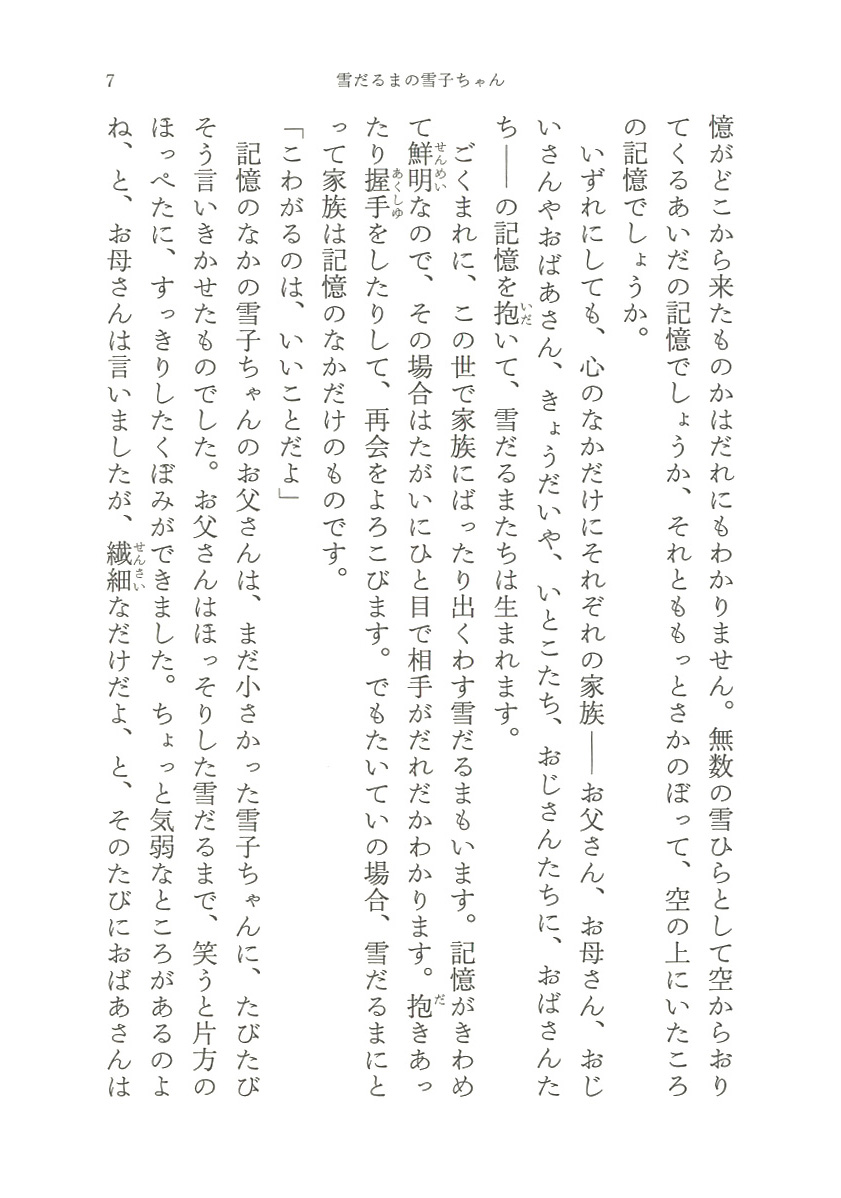 7
雪だるまの雪子ちゃん
憶がどこから来たものかはだれにもわかりません。無数の雪ひらとして空からおり
てくるあいだの記憶でしょうか、それとももっとさかのぼって、空の上にいたころ
の記憶でしょうか。
いずれにしても、心のなかだけにそれぞれの家族――お父さん、お母さん、おじ
いさんやおばあさん、きょうだいや、いとこたち、おじさんたちに、おばさんた
ち――の記憶を抱いて、雪だるまたちは生まれます。
ごくまれに、この世で家族にばったり出くわす雪だるまもいます。記憶がきわめ
て鮮明なので、その場合はたがいにひと目で相手がだれだかわかります。抱きあっ
たり握手をしたりして、再会をよろこびます。でもたいていの場合、雪だるまにと
って家族は記憶のなかだけのものです。
「こわがるのは、いいことだよ」
記憶のなかの雪子ちゃんのお父さんは、まだ小さかった雪子ちゃんに、たびたび
そう言いきかせたものでした。お父さんはほっそりした雪だるまで、笑うと片方の
ほっぺたに、すっきりしたくぼみができました。ちょっと気弱なところがあるのよ
ね、と、お母さんは言いましたが、繊細なだけだよ、と、そのたびにおばあさんは